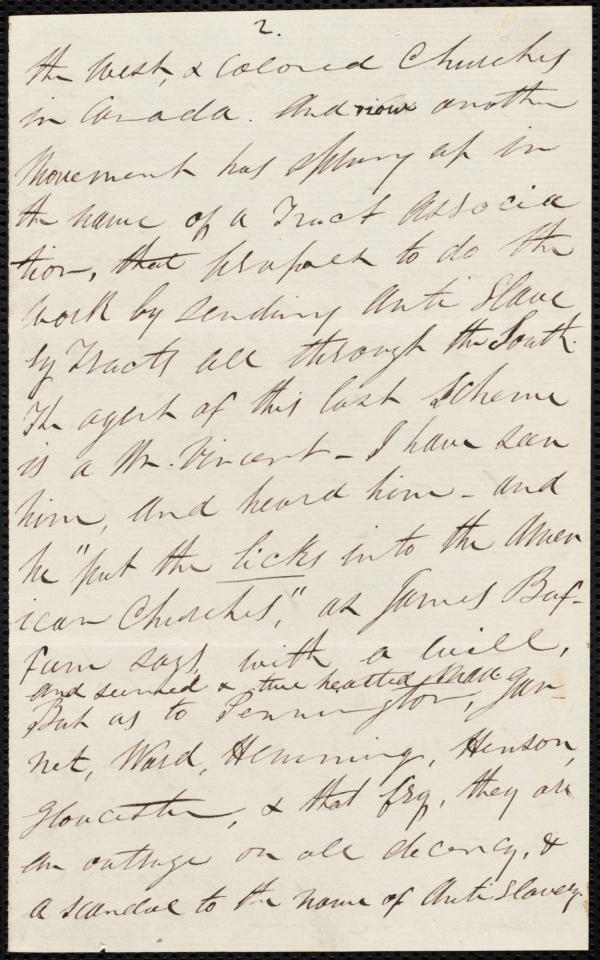 2.
the West, & Colored Churches
in Canada. And now another
movement has sprung up in
the name of a Tract Associa
tion, that proposes to do the
work by sending Anti Slave
ry Tracts all through the South.
The agent of this last scheme
is a Mr. Vincent - I have seen
him, and heard him - and
he "put the licks into the Amer
ican Churches," as James Buf-
fum says, with a will,
and seemed a true hearted man
But as to Pennington, Gar-
net, Ward, Hemming, Henson,
Gloucester, & that fry, they are
an outrage on all decency, &
a scandal to the name of Anti Slavery.